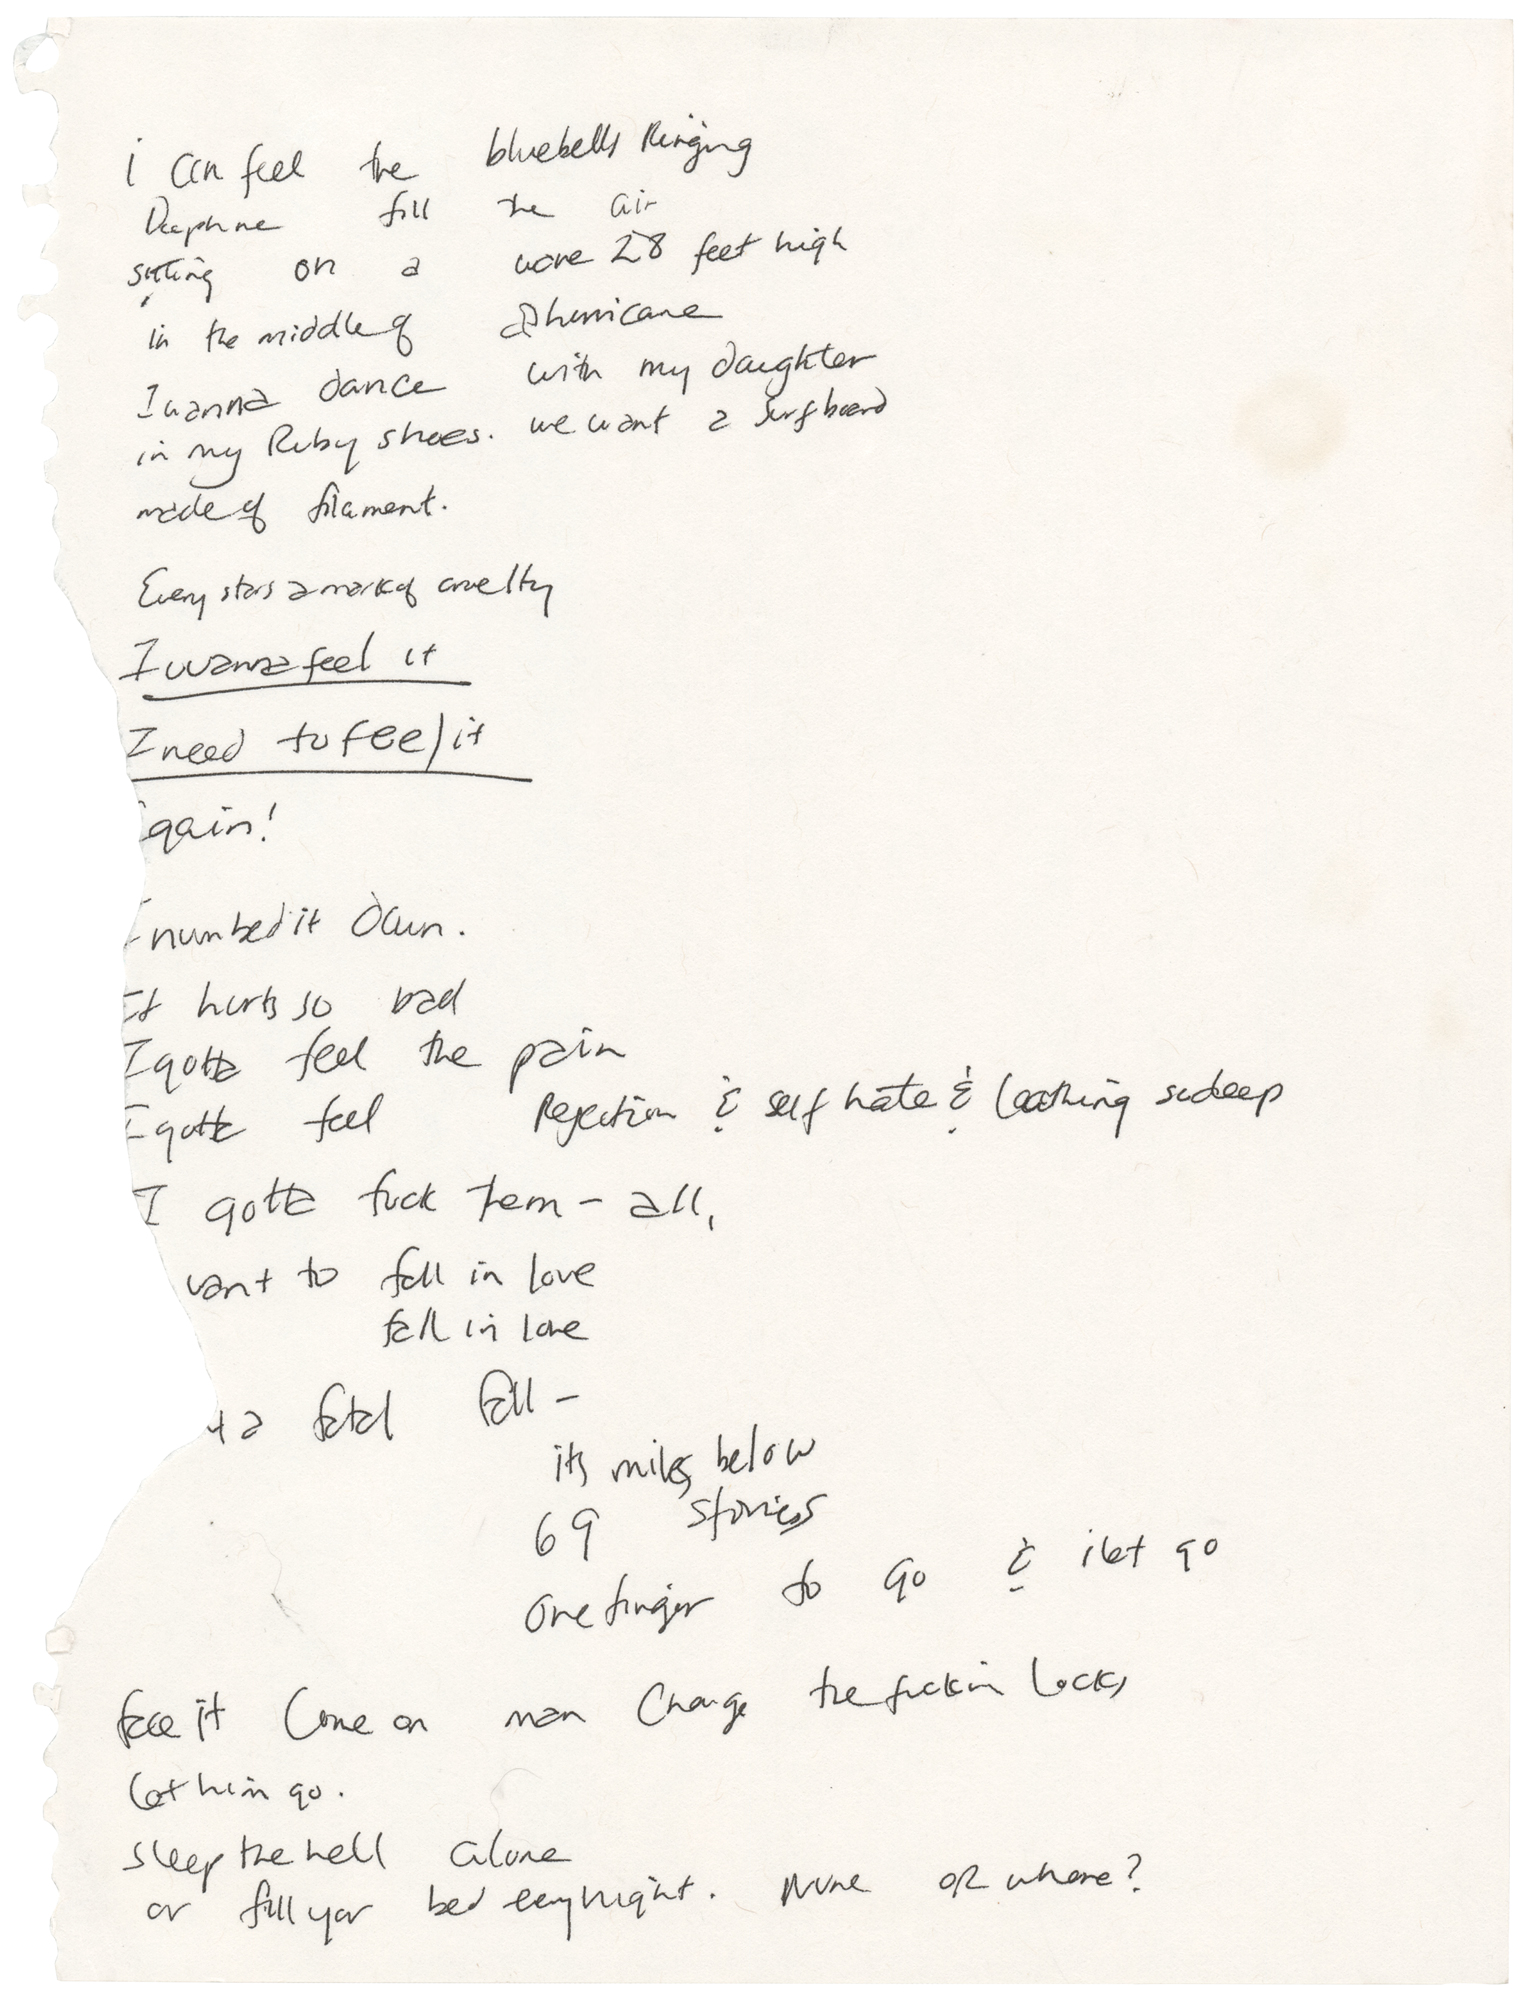 i can feel the bluebells Ringing
Daephne fill the air
sitting on a wave 28 feet high
in the middle of a hurricane
I wanna dance with my daughter
in my Ruby shoes. we want a surfboard
made of filament.
Every stars a mark of cruelty
I wanna feel it
I need to feel it
again!
I numbed it down.
It hurts so bad
I gotta feel the pain
I gotta feel Rejection & self hate & loathing so deep
I gotta fuck them - all,
want to fall in love
fall in love
a fatal fall -
its miles below
69 stories
one finger to go & i let go
face it Come on man Change the fuckin Locks
let him go.
sleep the hell alone
or fill yor bed every night. Nun or whore?